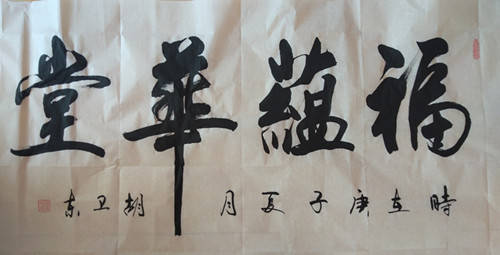 福蘊華堂
時在庚子夏月胡卫东